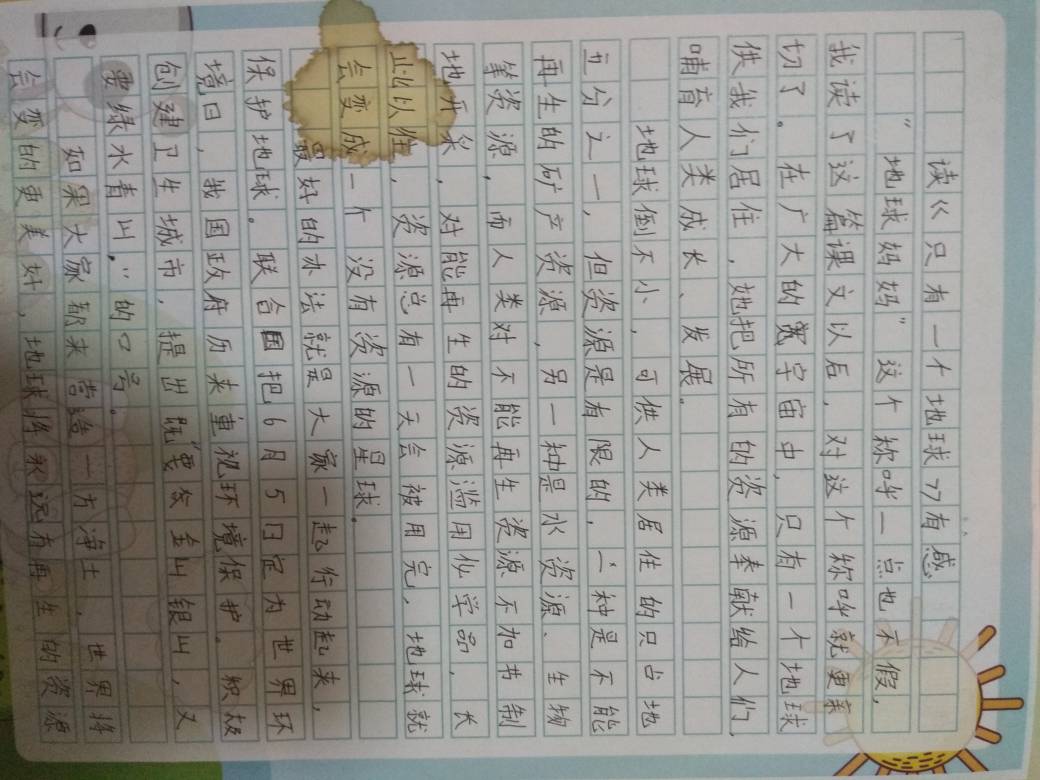 读《只有一个地球》有感
“地球妈妈”这个称呼一点也不假，
我读了这篇课文以后，对这个称呼就更亲
切了。在广大的宽宇宙中，只有一个地球
供我们居住，她把所有的资源奉献给人们，
哺育人类成长、发展。
地球倒不小，可供人类居住的只占地
五分之一，但资源是有限的，一种是不能
再生的矿产资源，另一种是水资源、生物
等资源，而人类对不能再生资源不加节制
地开采，对能再生的资源滥用化学品，长
此以往，资源总有一天会被用完，地球就
会变成一个没有资源的星球。
最好的办法就是大家一起行动起来，
保护地球。联合国把6月5日定为世界环
境日，我国政府历来重视环境保护。积极
创建卫生城市，提出既“要金山银山，又
要绿水青山，”的口号。
如果大家都来营造一方净土，世界将
会变的更美好，地球将永远有再生的资源